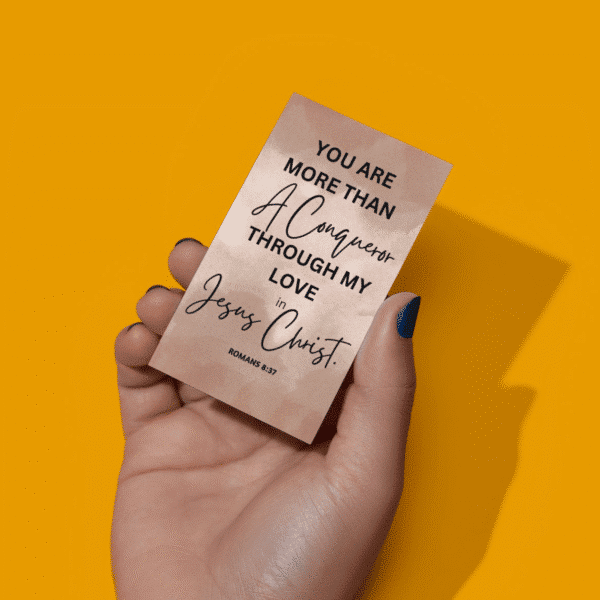 YOU ARE
MORE THAN
A Conqueror
THROUGH MY
LOVE
in
Jesus Christ.
ROMANS 8:37